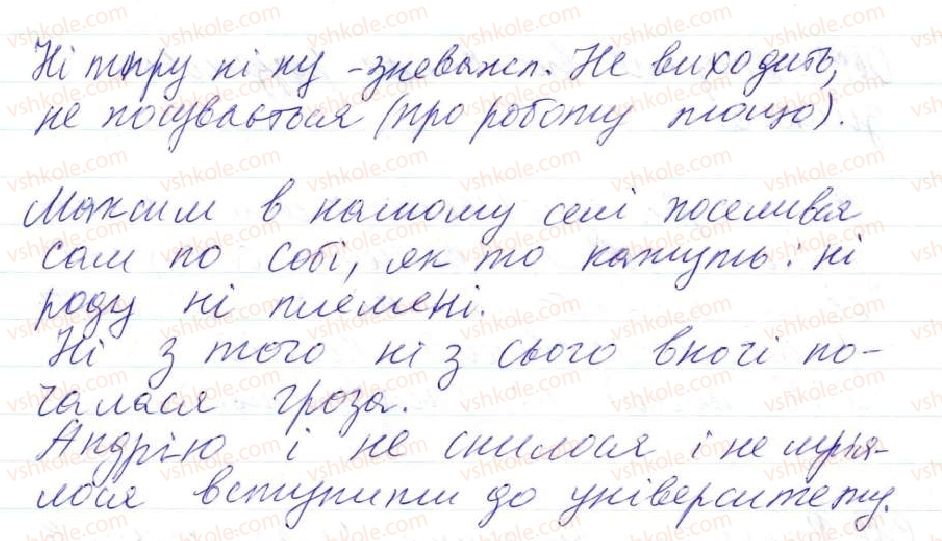 Ні тпру ні ну - зневажл. Не виходить,
не посувається (про роботу тощо).
Максим в нашому селі поселився
сам по собі, як то кажуть: ні
роду ні племені.
Ні з того ні з сього вночі по-
чалася гроза.
Андрію і не снилося і не мрія-
лося вступити до університету.